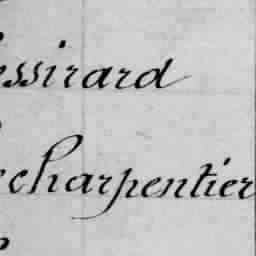 essirard
echarpentier